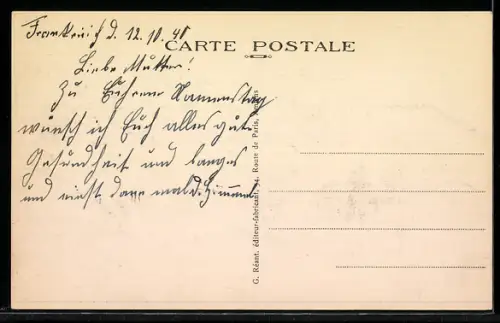 Frankreich d. 12.10.40
CARTE POSTALE
Liebe Mutter!
Zu Euhrem Namenstag
wünsch ich Euch alles gute
Gesundheit und langes
und
G. Réant, éditeur-fabricant, Route de Paris,